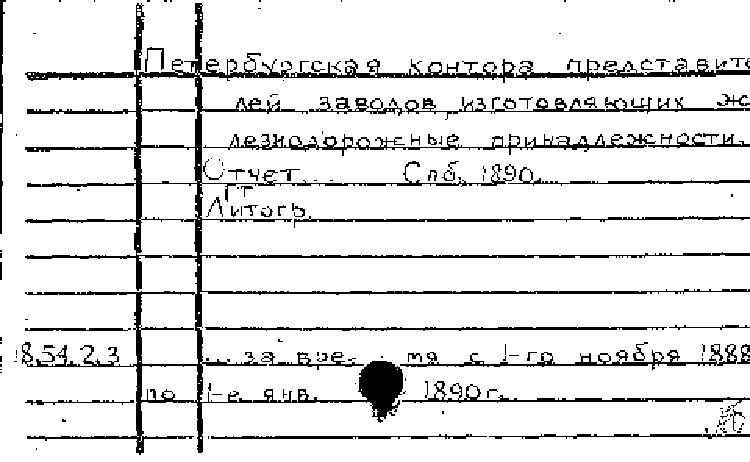 Петербургская контора представите
лей заводов, изготовляющих же
лезнодорожные принадлежности.
Отчет... Спб. 1890.
Литогр.
8.54.2.3 ... за вре. мя с 1-го ноября 1888
по 1-е янв. 1890 г.